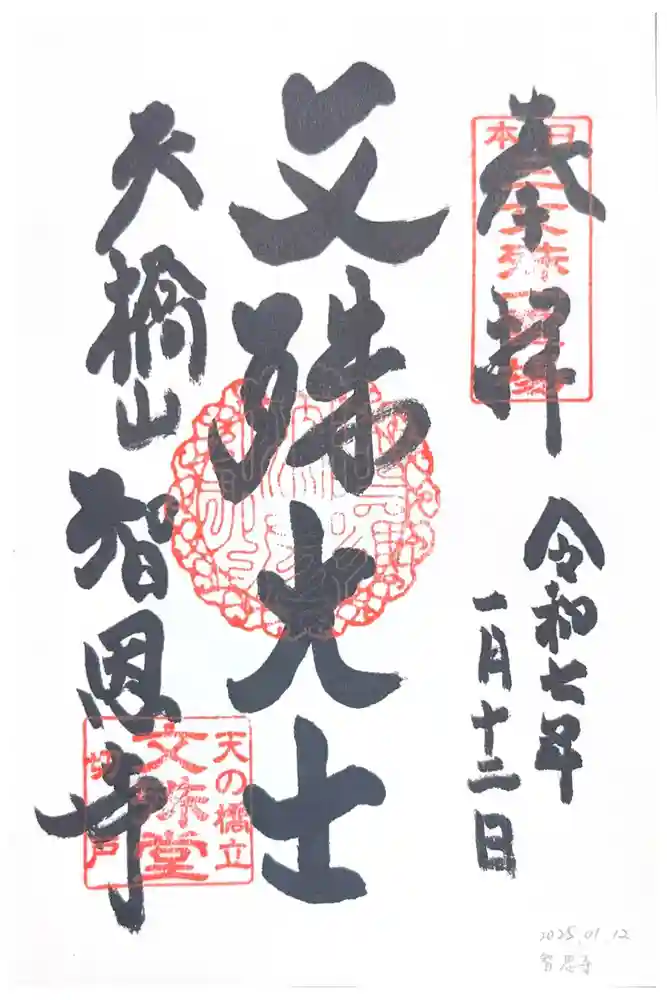 奉拝
日本三文殊第一霊場
令和七年
一月十二日
文殊大士
天橋山
智恩寺
天の橋立
文殊堂
切戸
2025.01.12
智恩寺